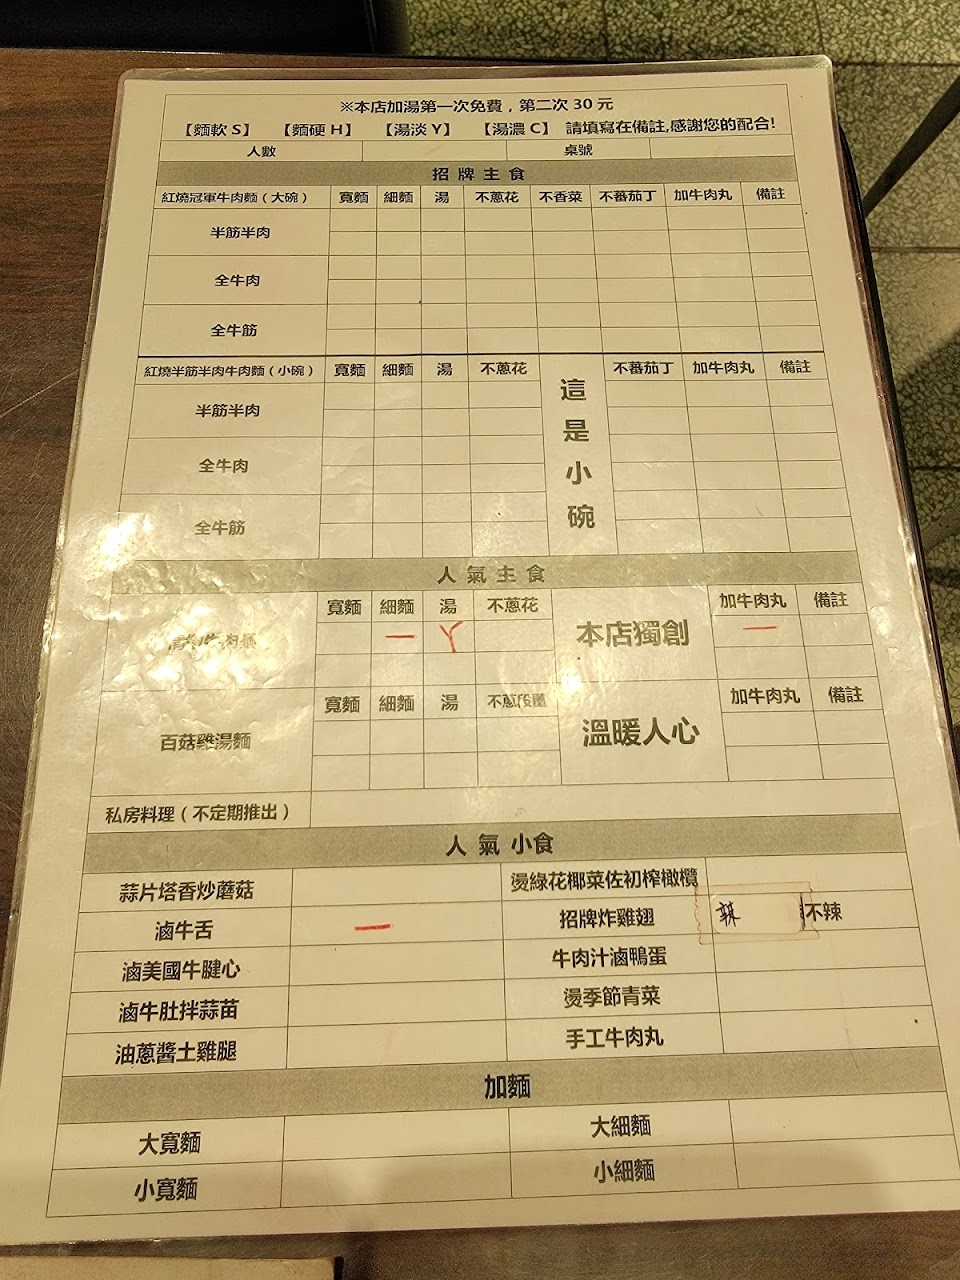 ※本店加湯第一次免費，第二次 30 元
【麵軟 S】 【麵硬 H】 【湯淡 Y】 【湯濃 C】 請填寫在備註,感謝您的配合!
人數 桌號
招牌主食
紅燒冠軍牛肉麵（大碗） 寬麵 細麵 湯 不蔥花 不香菜 不蕃茄丁 加牛肉丸 備註
半筋半肉
全牛肉
全牛筋
紅燒半筋半肉牛肉麵（小碗） 寬麵 細麵 湯 不蔥花 不蕃茄丁 加牛肉丸 備註
這是小碗
半筋半肉
全牛肉
全牛筋
人氣主食
寬麵 細麵 湯 不蔥花 加牛肉丸 備註
肉麵 一 Y 本店獨創 一
寬麵 細麵 湯 加牛肉丸 備註
百菇雞湯麵 溫暖人心
私房料理（不定期推出）
人氣小食
蒜片塔香炒蘑菇 燙綠花椰菜佐初榨橄欖
滷牛舌 一 招牌炸雞翅 辣 不辣
滷美國牛腱心 牛肉汁滷鴨蛋
滷牛肚拌蒜苗 燙季節青菜
油蔥醬土雞腿 手工牛肉丸
加麵
大寬麵 大細麵
小寬麵 小細麵